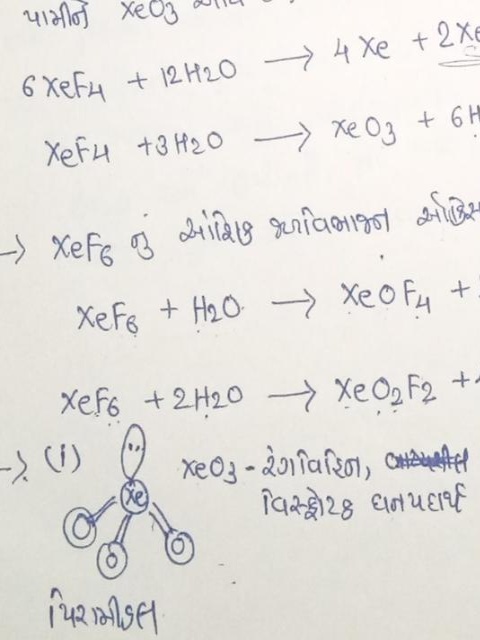 પામીને XeO3
6XeF4 + 12H2O → 4Xe + 2Xe
XeF4 + 3H2O → XeO3 + 6H
→ XeF6 નું આંશિક જળવિભાજન
XeF6 + H2O → XeOF4 +
XeF6 + 2H2O → XeO2F2 +
→ (i) XeO3 - રંગવિહિન,
વિસ્ફોટક ઘનપદાર્થ
Xe
O O O
પિરામીડલ